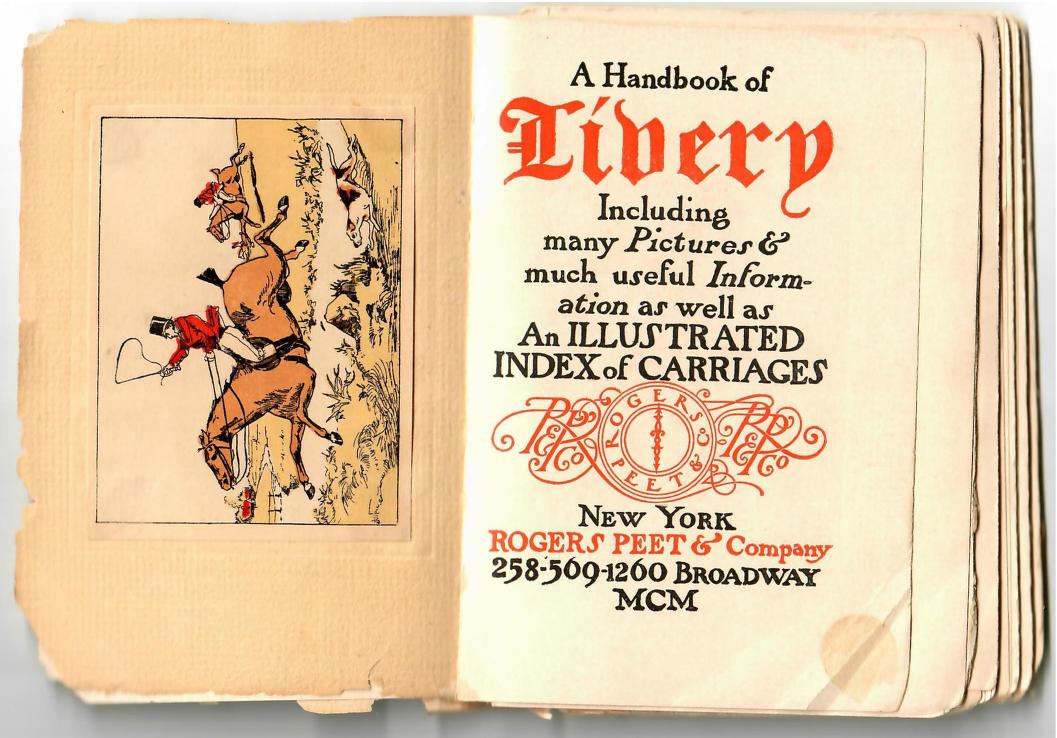 A Handbook of
Livery
Including
many Pictures &
much useful Inform-
ation as well as
An ILLUSTRATED
INDEX of CARRIAGES
RP&Co ROGERS PEET & Co RP&Co
NEW YORK
ROGERS PEET & Company
258-569-1260 BROADWAY
MCM